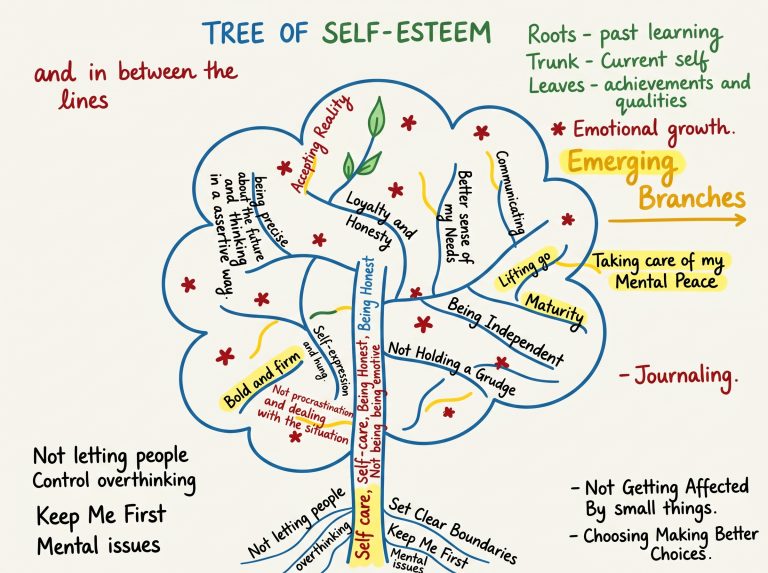 TREE OF SELF-ESTEEM
Roots - past learning
Trunk - Current self
Leaves - achievements and
qualities
* Emotional growth.
Emerging
Branches
and in between the
lines
Accepting Reality
being precise
about the future
and thinking
in a assertive way.
Loyalty and
Honesty
Better sense of
my Needs
Communicating
Lifting go
Taking care of my
Mental Peace
Maturity
Being Independent
Not Holding a Grudge
Self-expression
and hung.
Bold and firm
Not procrastination
and dealing
with the situation
Self care, Self-care, Being Honest, Being Honest
Not being being emotive
- Journaling.
Not letting people
Control overthinking
Keep Me First
Mental issues
Not letting people
overthinking
Set Clear Boundaries
Keep Me First
Mental
issues
- Not Getting Affected
By small things.
- Choosing Making Better
Choices.